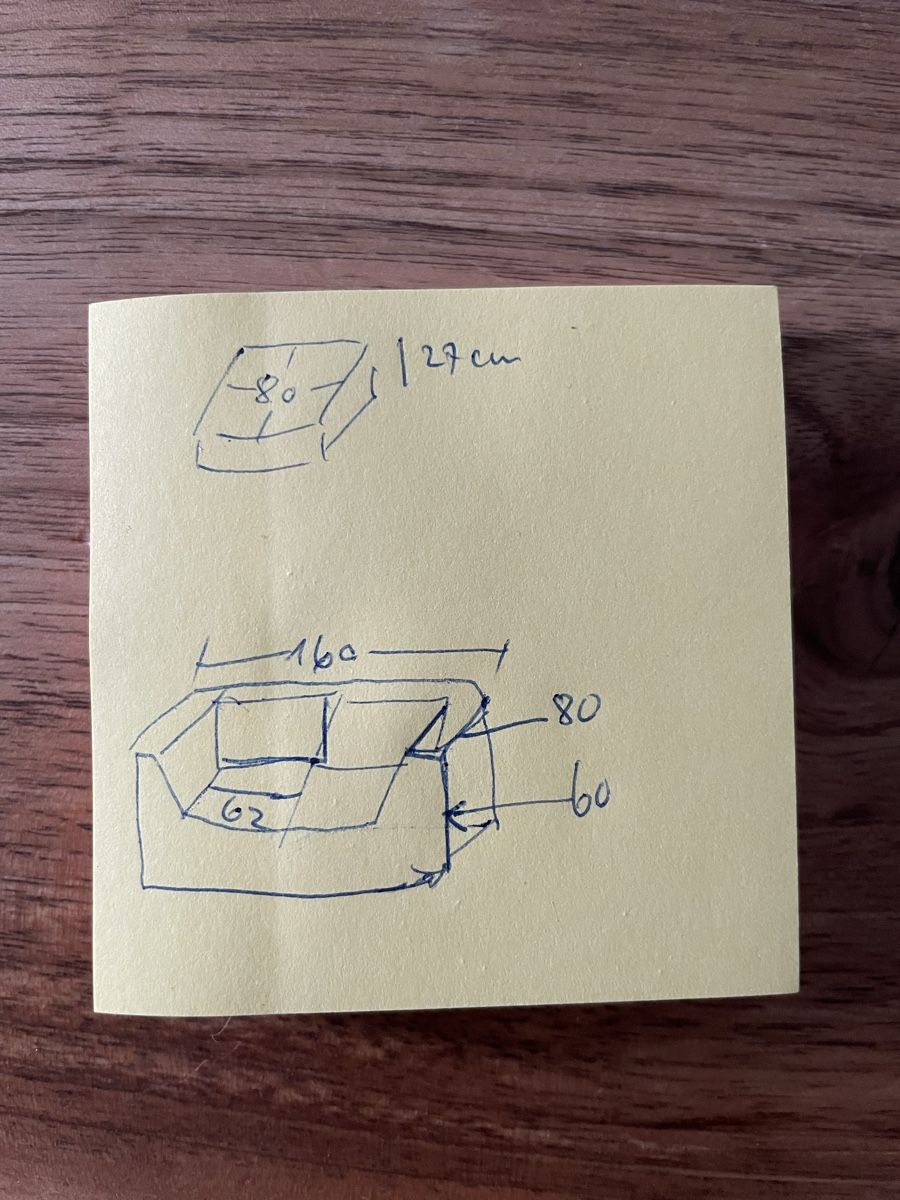 80
27 cm
160
80
62
60